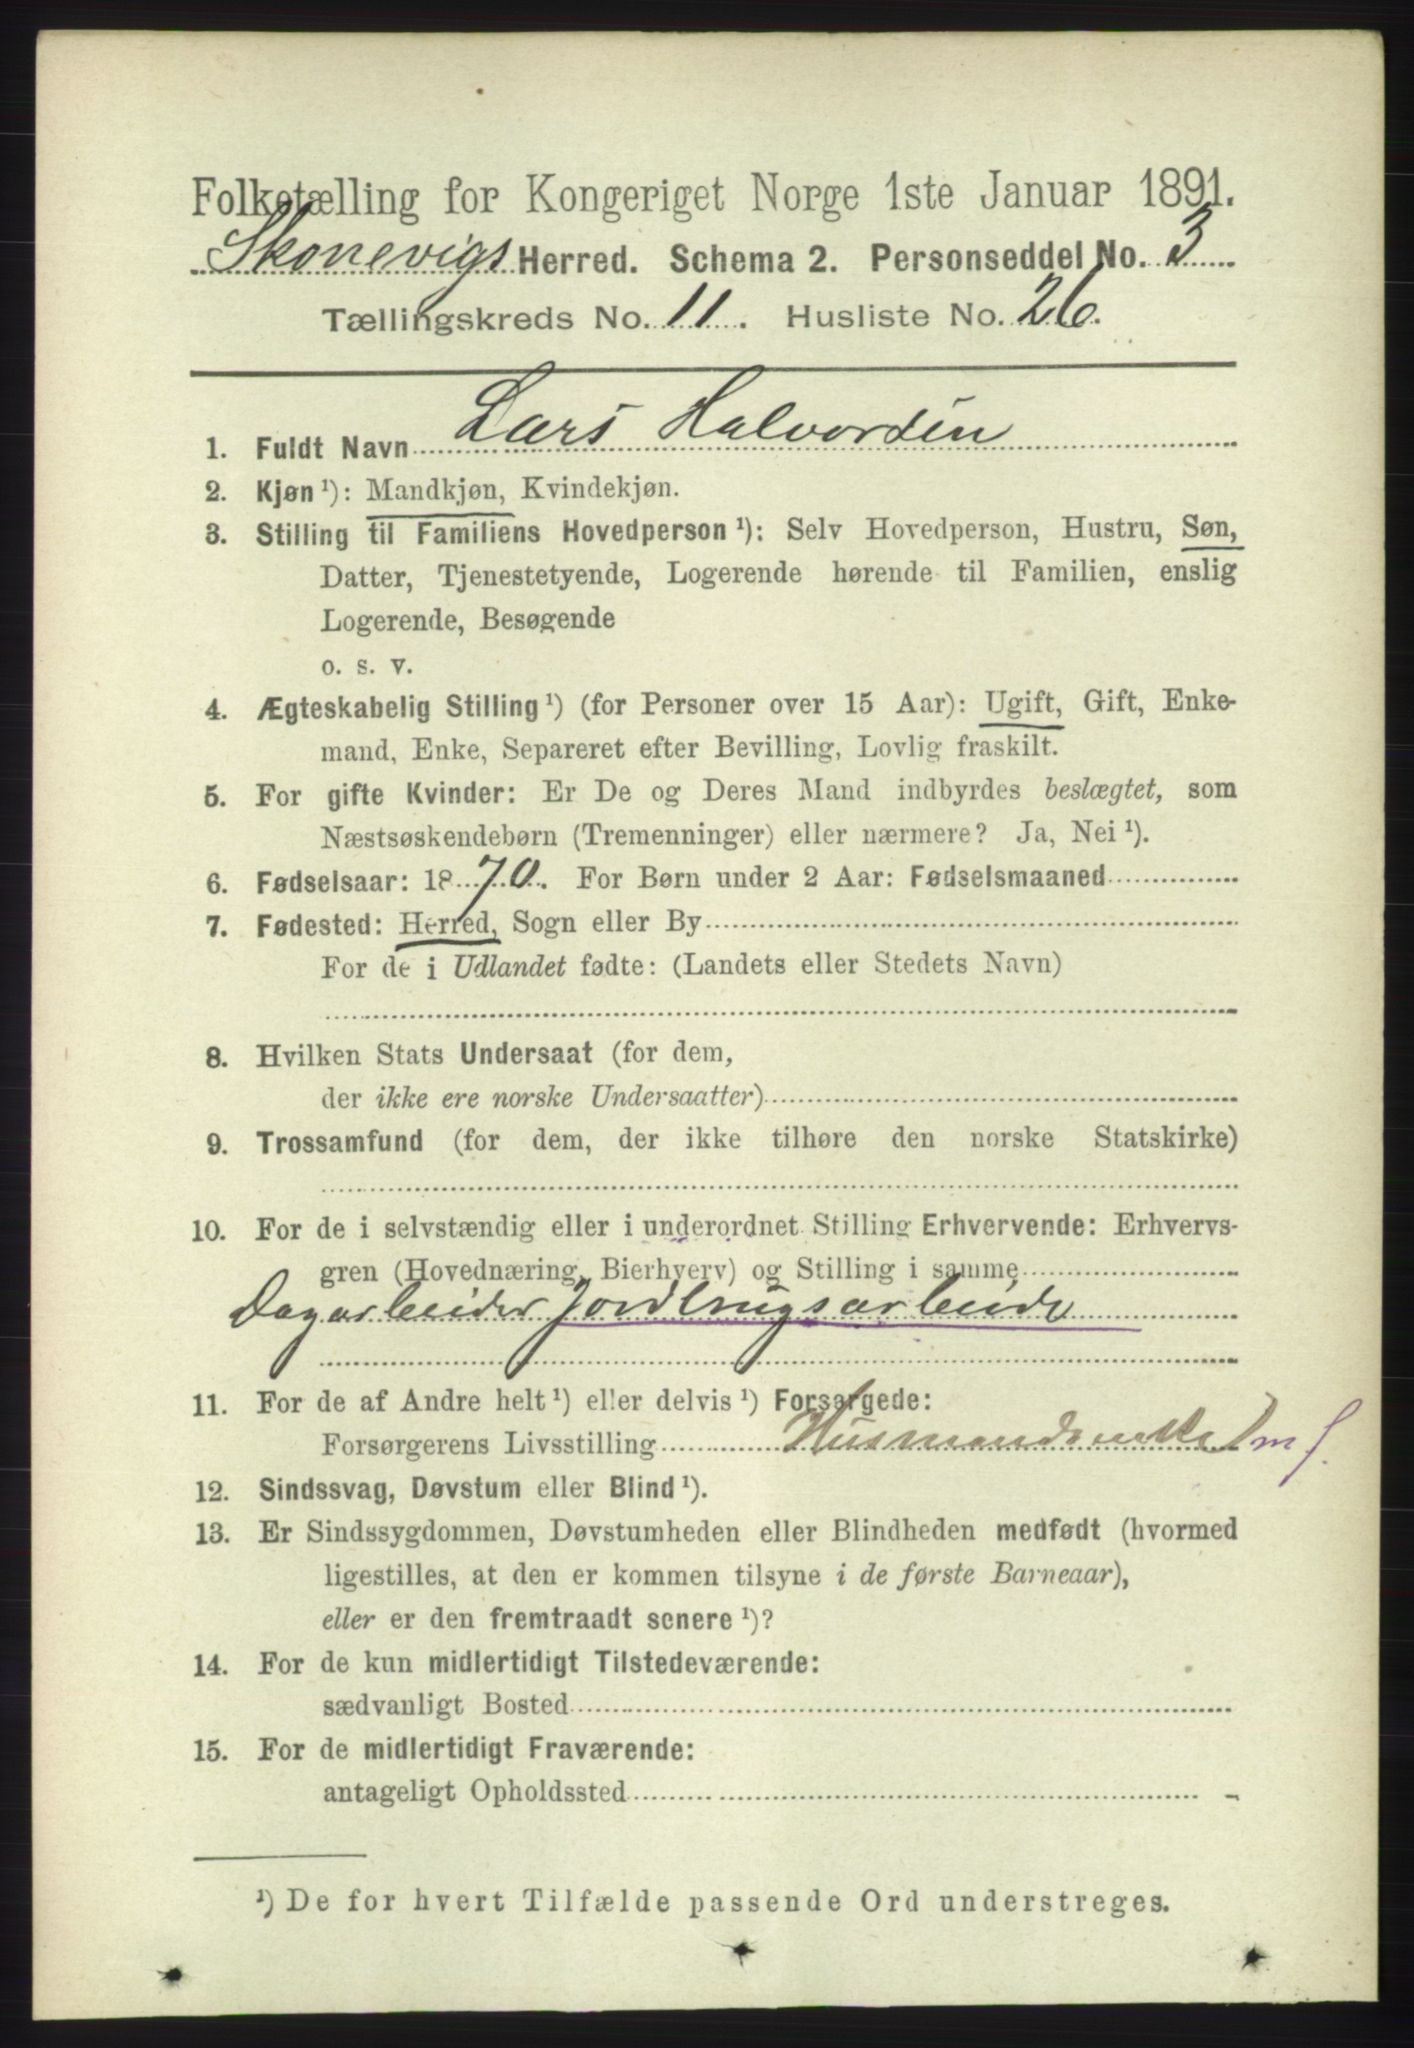 Folketælling for Kongeriget Norge 1ste Januar 1891.
Skonevigs Herred. Schema 2. Personseddel No. 3
Tællingskreds No. 11. Husliste No. 26.
1. Fuldt Navn Lars Halvorsen
2. Kjøn ¹): Mandkjøn, Kvindekjøn.
3. Stilling til Familiens Hovedperson ¹): Selv Hovedperson, Hustru, Søn,
Datter, Tjenestetyende, Logerende hørende til Familien, enslig
Logerende, Besøgende
o. s. v.
4. Ægteskabelig Stilling ¹) (for Personer over 15 Aar): Ugift, Gift, Enke-
mand, Enke, Separeret efter Bevilling, Lovlig fraskilt.
5. For gifte Kvinder: Er De og Deres Mand indbyrdes beslægtet, som
Næstsøskendebørn (Tremenninger) eller nærmere? Ja, Nei ¹).
6. Fødselsaar: 1870. For Børn under 2 Aar: Fødselsmaaned
7. Fødested: Herred, Sogn eller By
For de i Udlandet fødte: (Landets eller Stedets Navn)
8. Hvilken Stats Undersaat (for dem,
der ikke ere norske Undersaatter)
9. Trossamfund (for dem, der ikke tilhøre den norske Statskirke)
10. For de i selvstændig eller i underordnet Stilling Erhvervende: Erhvervs-
gren (Hovednæring, Bierhverv) og Stilling i samme
Dagarbeider Jordbrugsarbeide
11. For de af Andre helt ¹) eller delvis ¹) Forsørgede:
Forsørgerens Livsstilling Husmandsenke
12. Sindssvag, Døvstum eller Blind ¹).
13. Er Sindssygdommen, Døvstumheden eller Blindheden medfødt (hvormed
ligestilles, at den er kommen tilsyne i de første Barneaar),
eller er den fremtraadt senere ¹)?
14. For de kun midlertidigt Tilstedeværende:
sædvanligt Bosted
15. For de midlertidigt Fraværende:
antageligt Opholdssted
¹) De for hvert Tilfælde passende Ord understreges.